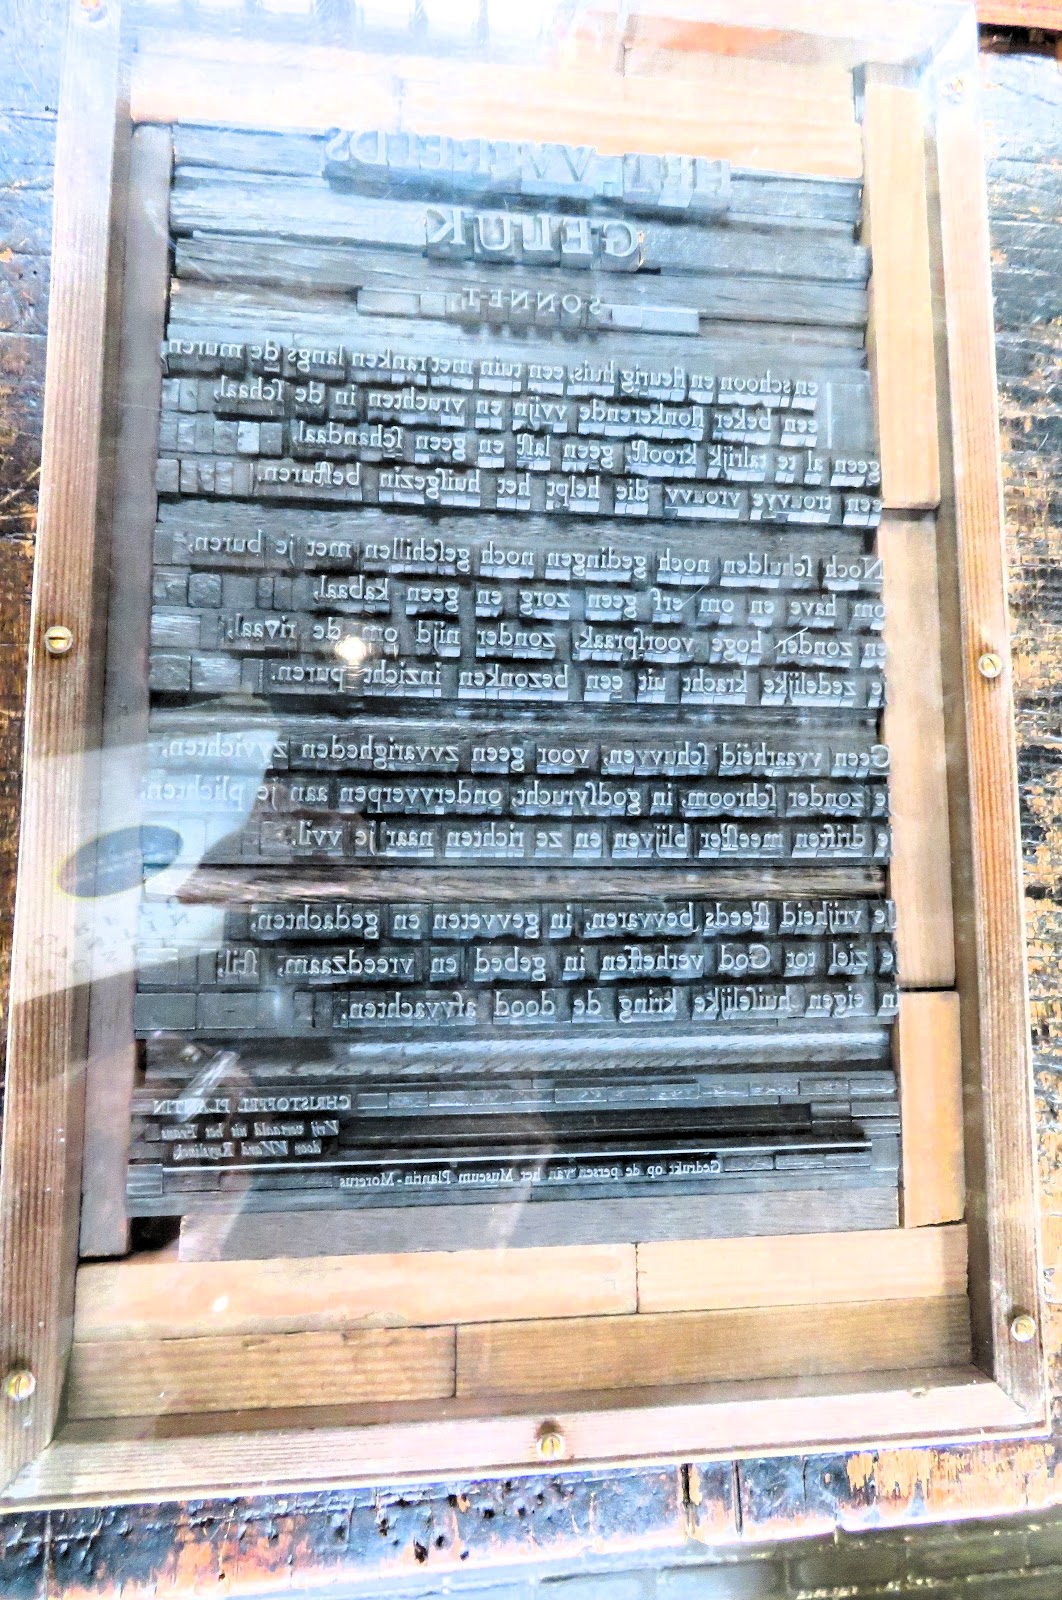 HET VVERELDS
GELUK
SONNET
en schoon en fleurig huis, een tuin met ranken langs de muren,
een beker flonkerende vvijn en vruchten in de ſchaal,
geen al te talrijk krooſt, geen laſt en geen ſchandaal,
een trouvve vrouvv die helpt het huiſgezin beſturen.
Noch ſchulden noch gedingen noch geſchillen met je buren,
om have en om erf geen zorg en geen kabaal,
en zonder hoge voorſpraak, zonder nijd om de rivaal,
je zedelijke kracht uit een bezonken inzicht puren.
Geen vvaarheid ſchuvven, voor geen zvvarigheden zvvichten,
je zonder ſchroom, in godſvrucht, ondervverpen aan je plichten,
je driften meeſter blijven en ze richten naar je vvil.
Je vrijheid ſteeds bevvaren, in gevveten en gedachten,
je ziel tot God verheffen in gebed en vreedzaam, ſtil,
in eigen huiſelijke kring de dood afvvachten.
CHRISTOFFEL PLANTIN
Vrij vertaald uit het Frans
door VVard Ruyslinck
Gedrukt op de persen van het Museum Plantin-Moretus